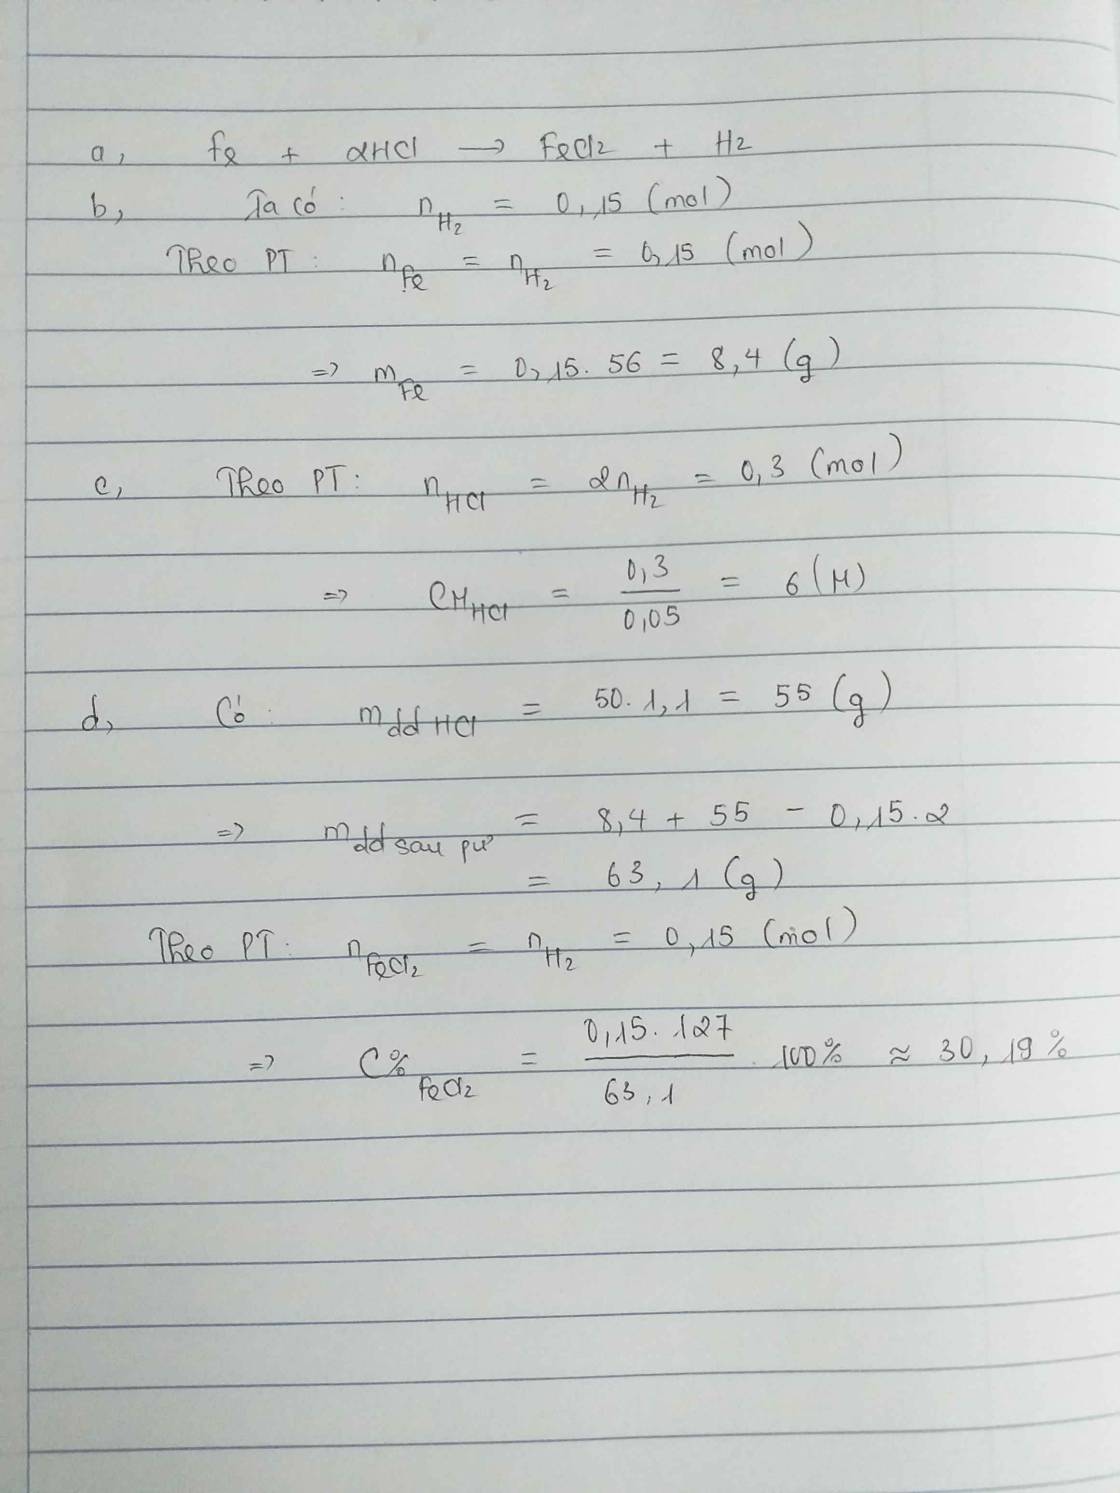 a, Fe + 2HCl → FeCl2 + H2
b, Ta có: nH2 = 0,15 (mol)
Theo PT: nFe = nH2 = 0,15 (mol)
=> mFe = 0,15. 56 = 8,4 (g)
c, Theo PT: nHCl = 2nH2 = 0,3 (mol)
=> CMHCl = 0,3/0,05 = 6 (M)
d, Có: mdd HCl = 50. 1,1 = 55 (g)
=> mdd sau pư = 8,4 + 55 - 0,15.2
= 63,1 (g)
Theo PT: nFeCl2 = nH2 = 0,15 (mol)
=> C%FeCl2 = 0,15. 127/63,1 . 100% ≈ 30,19%